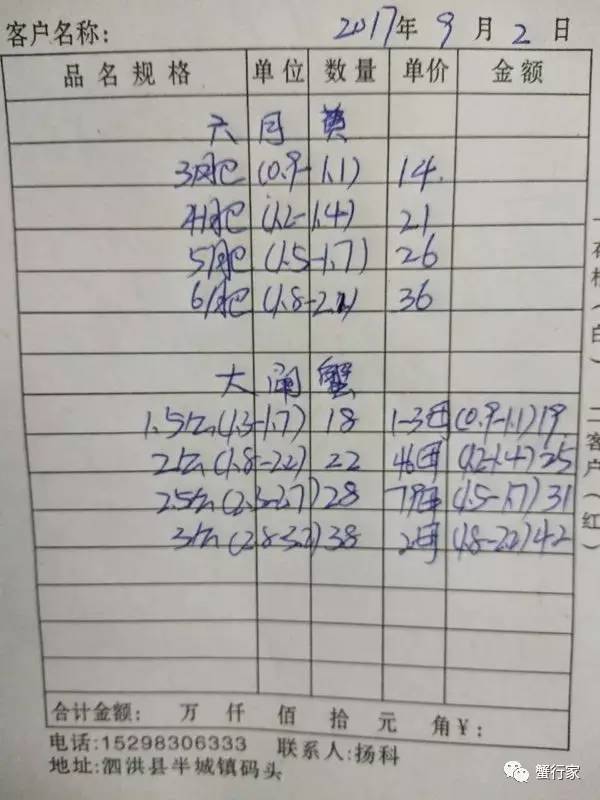 客户名称: 2017年9月2日
品名规格 单位 数量 单价 金额
六月黄
3月肥 (0.9-1.1) 14.
4月肥 (1.2-1.4) 21
5月肥 (1.5-1.7) 26
6月肥 (1.8-2.2) 36
大闸蟹
1.5 (1.3-1.7) 18 (0.9-1.1) 19
2 (1.8-2.2) 22 (1.2-1.4) 25
2.5 (2.3-2.7) 28 (1.5-1.7) 31
3 (2.8-3.2) 38 (1.8-2.2) 42
合计金额: 万 仟 佰 拾 元 角¥:
电话:15298306333 联系人:扬科
地址:泗洪县半城镇码头
二客户(红)
蟹行家